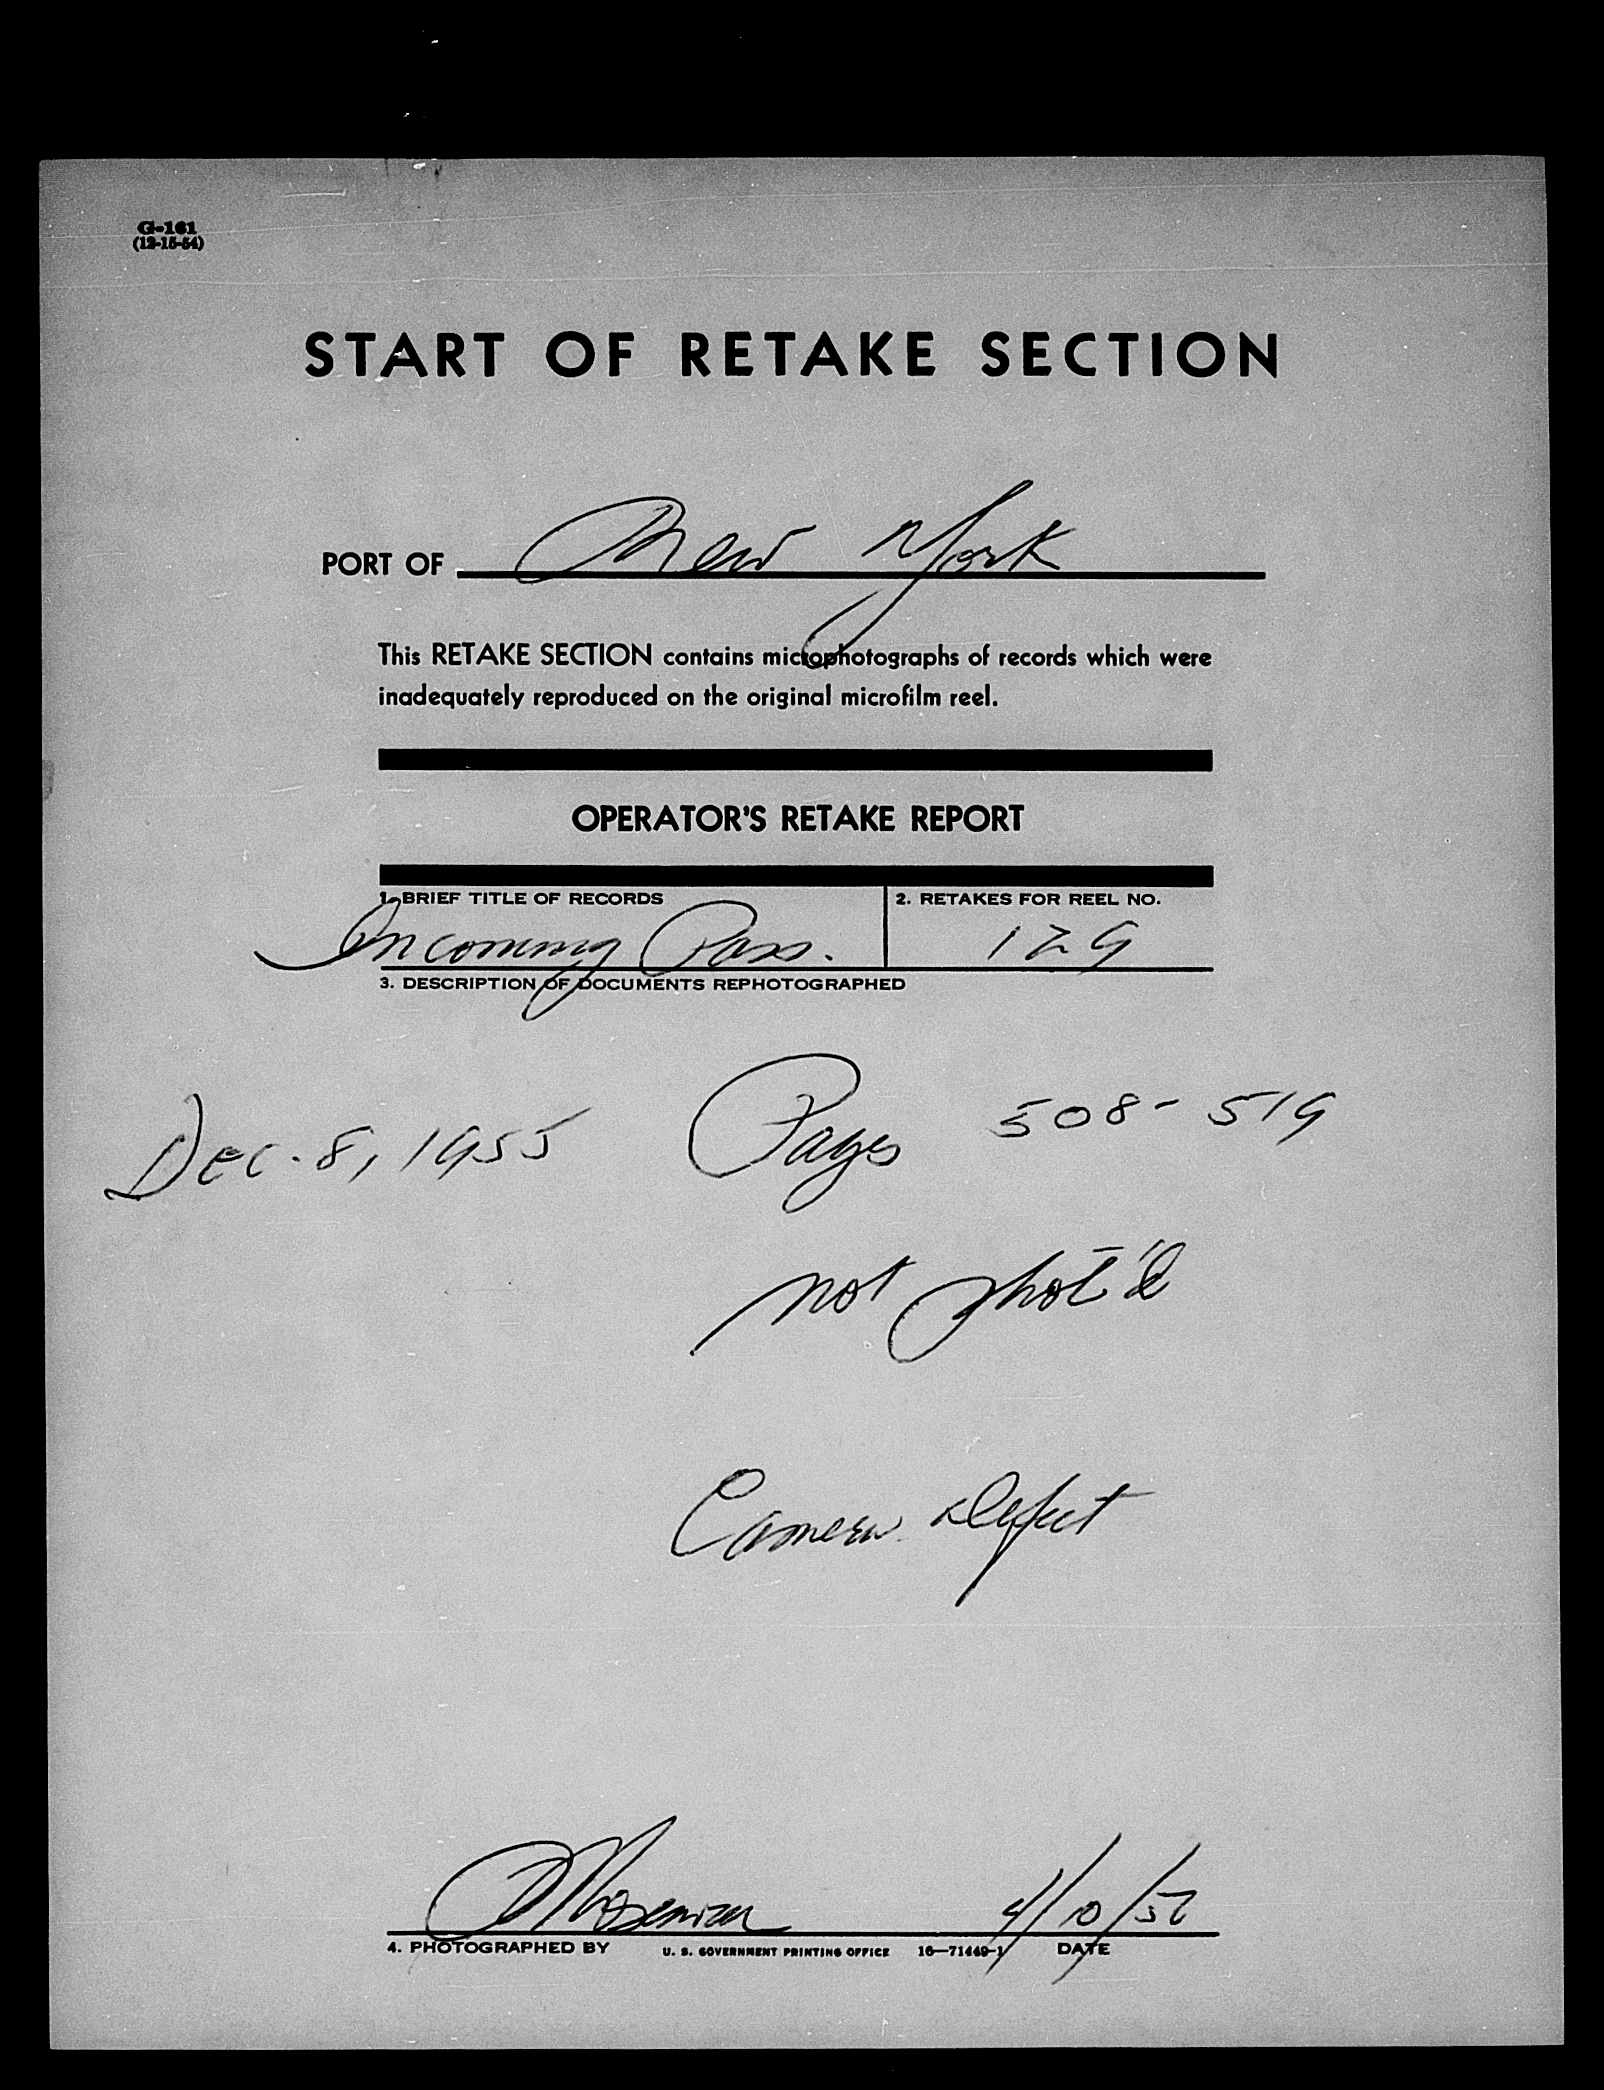 G-161
(12-15-54)
START OF RETAKE SECTION
PORT OF New York
This RETAKE SECTION contains microphotographs of records which were
inadequately reproduced on the original microfilm reel.
OPERATOR'S RETAKE REPORT
1. BRIEF TITLE OF RECORDS 2. RETAKES FOR REEL NO.
Incoming Pass. 129
3. DESCRIPTION OF DOCUMENTS REPHOTOGRAPHED
Dec. 8, 1955 Pages 508-519
not phot'd
Camera defect
4/10/57
4. PHOTOGRAPHED BY U. S. GOVERNMENT PRINTING OFFICE 16—71449-1 DATE